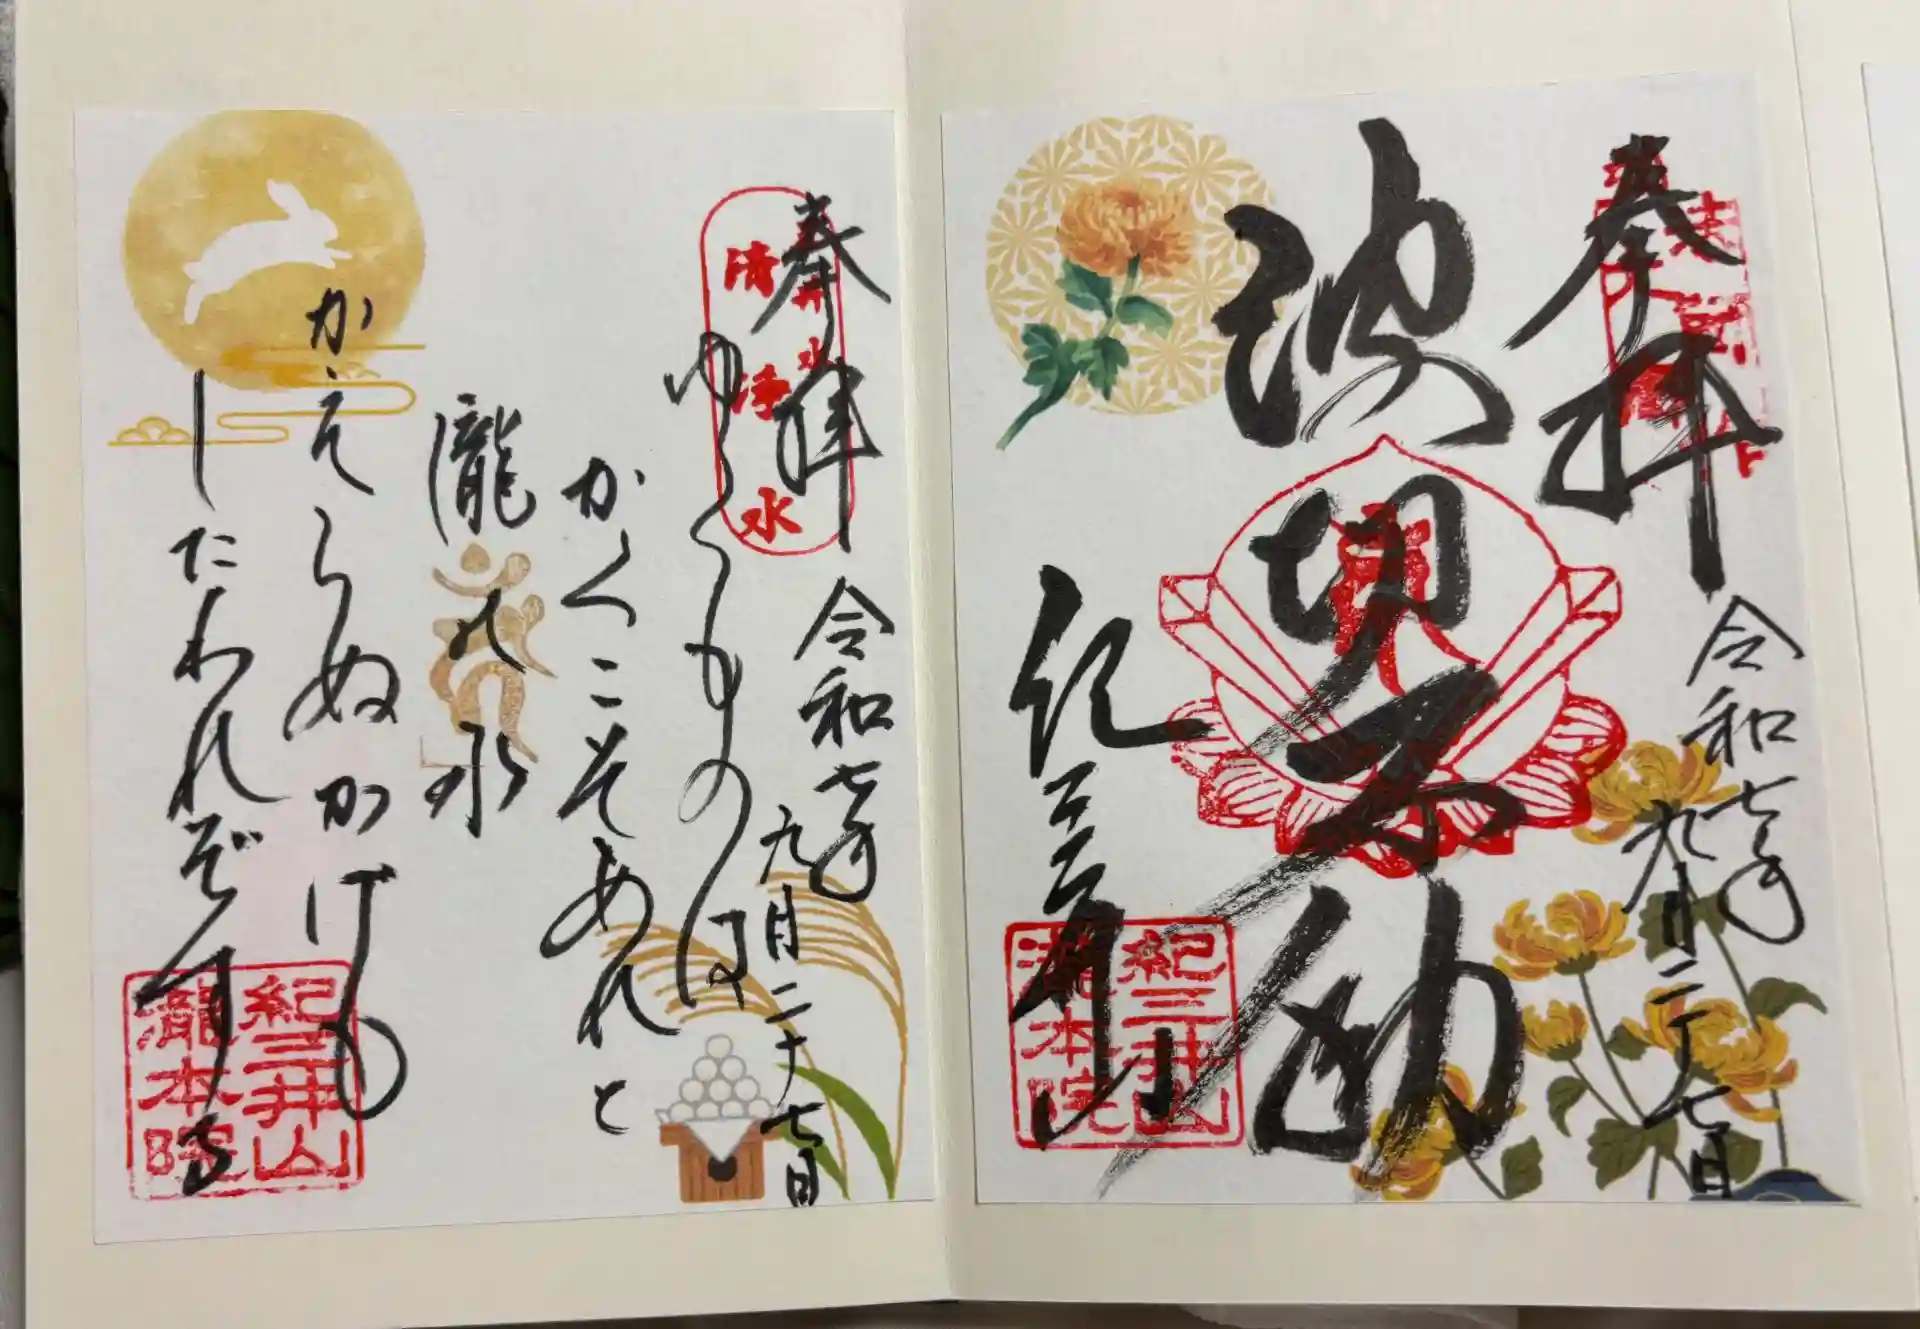 奉拝
令和七年
九月二十七日
波切不動
紀三井寺
紀三井山
瀧本院
奉拝
令和七年
九月二十七日
清浄水
ゆくものは
かくこそあれと
瀧の水
かえらぬかげの
したわれぞする
紀三井山
瀧本院